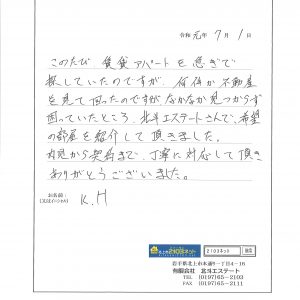 令和 元年 7月 1
このたび 賃貸アパートを急ぎで
探していたのですが、何件か不動産
を見て回ったのですがなかなか見つからず
困っていたところ、北斗エステートさんで、希望
の部屋を紹介して頂きました。
内見から契約まで、丁寧に対応して頂き
ありがとうございました。
お名前:
(又はイニシャル)
K.H
2103ネット
検索
岩手県北上市本通り9-丁目4-16
有限会社 北斗エステート
TEL (0197)65-2103
FAX (0197)65-2111